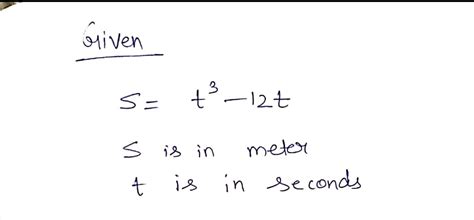 Given
S = t³ - 12t
S is in meter
t is in seconds